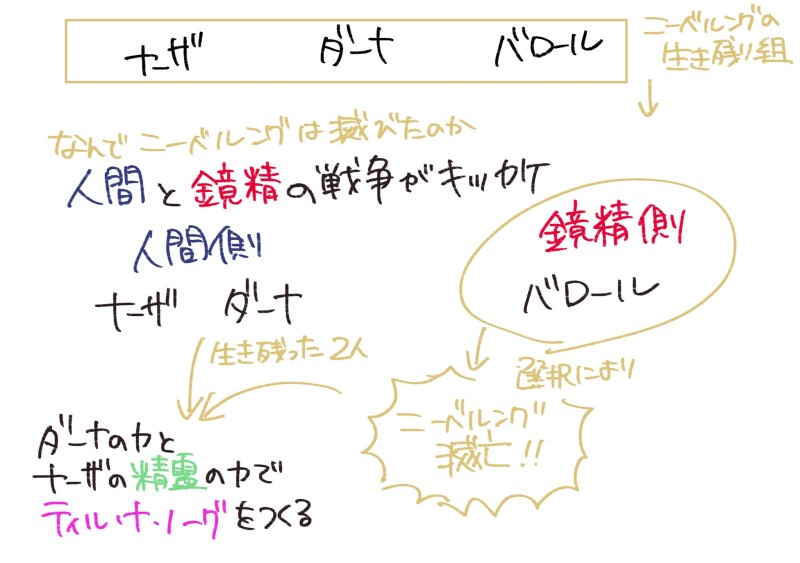 ナーザ ダーナ バロール
ニーベルングの
生き残り組
なんでニーベルングは滅びたのか
人間と鏡精の戦争がキッカケ
人間側
ナーザ ダーナ
鏡精側
バロール
生き残った2人
選択により
ニーベルング
滅亡!!
ダーナの力と
ナーザの精霊の力で
ティルナ・ノーグをつくる